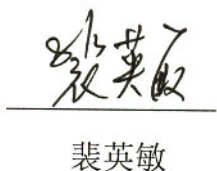 裴英敏
裴英敏